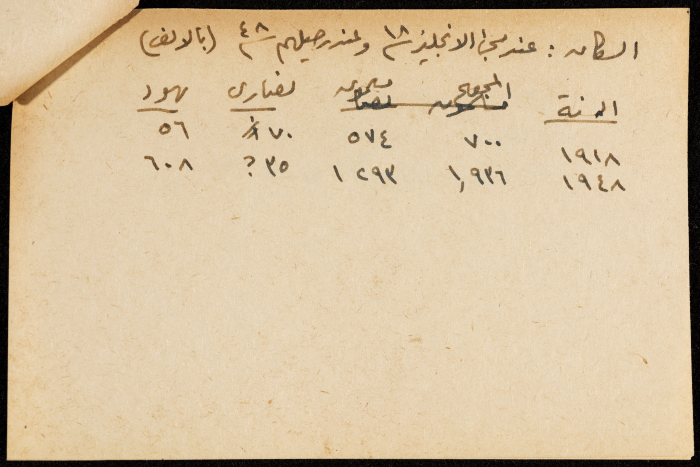 السكان : عند مجئ الانجليز سنة ١٨ وعند رحيلهم سنة ٤٨ (بالالف)
السنة المجموع مسلمون نصارى يهود
١٩١٨ ٧٠٠ ٥٧٤ ٧٠ ٥٦
١٩٤٨ ١,٩٣٦ ١٢٩٣ ٣٥ ? ٦٠٨